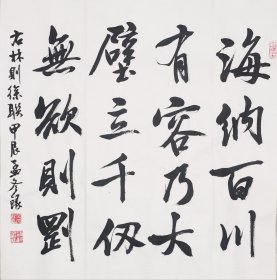 海納百川
有容乃大
壁立千仞
無欲則剛
右林則徐联甲辰孟彦